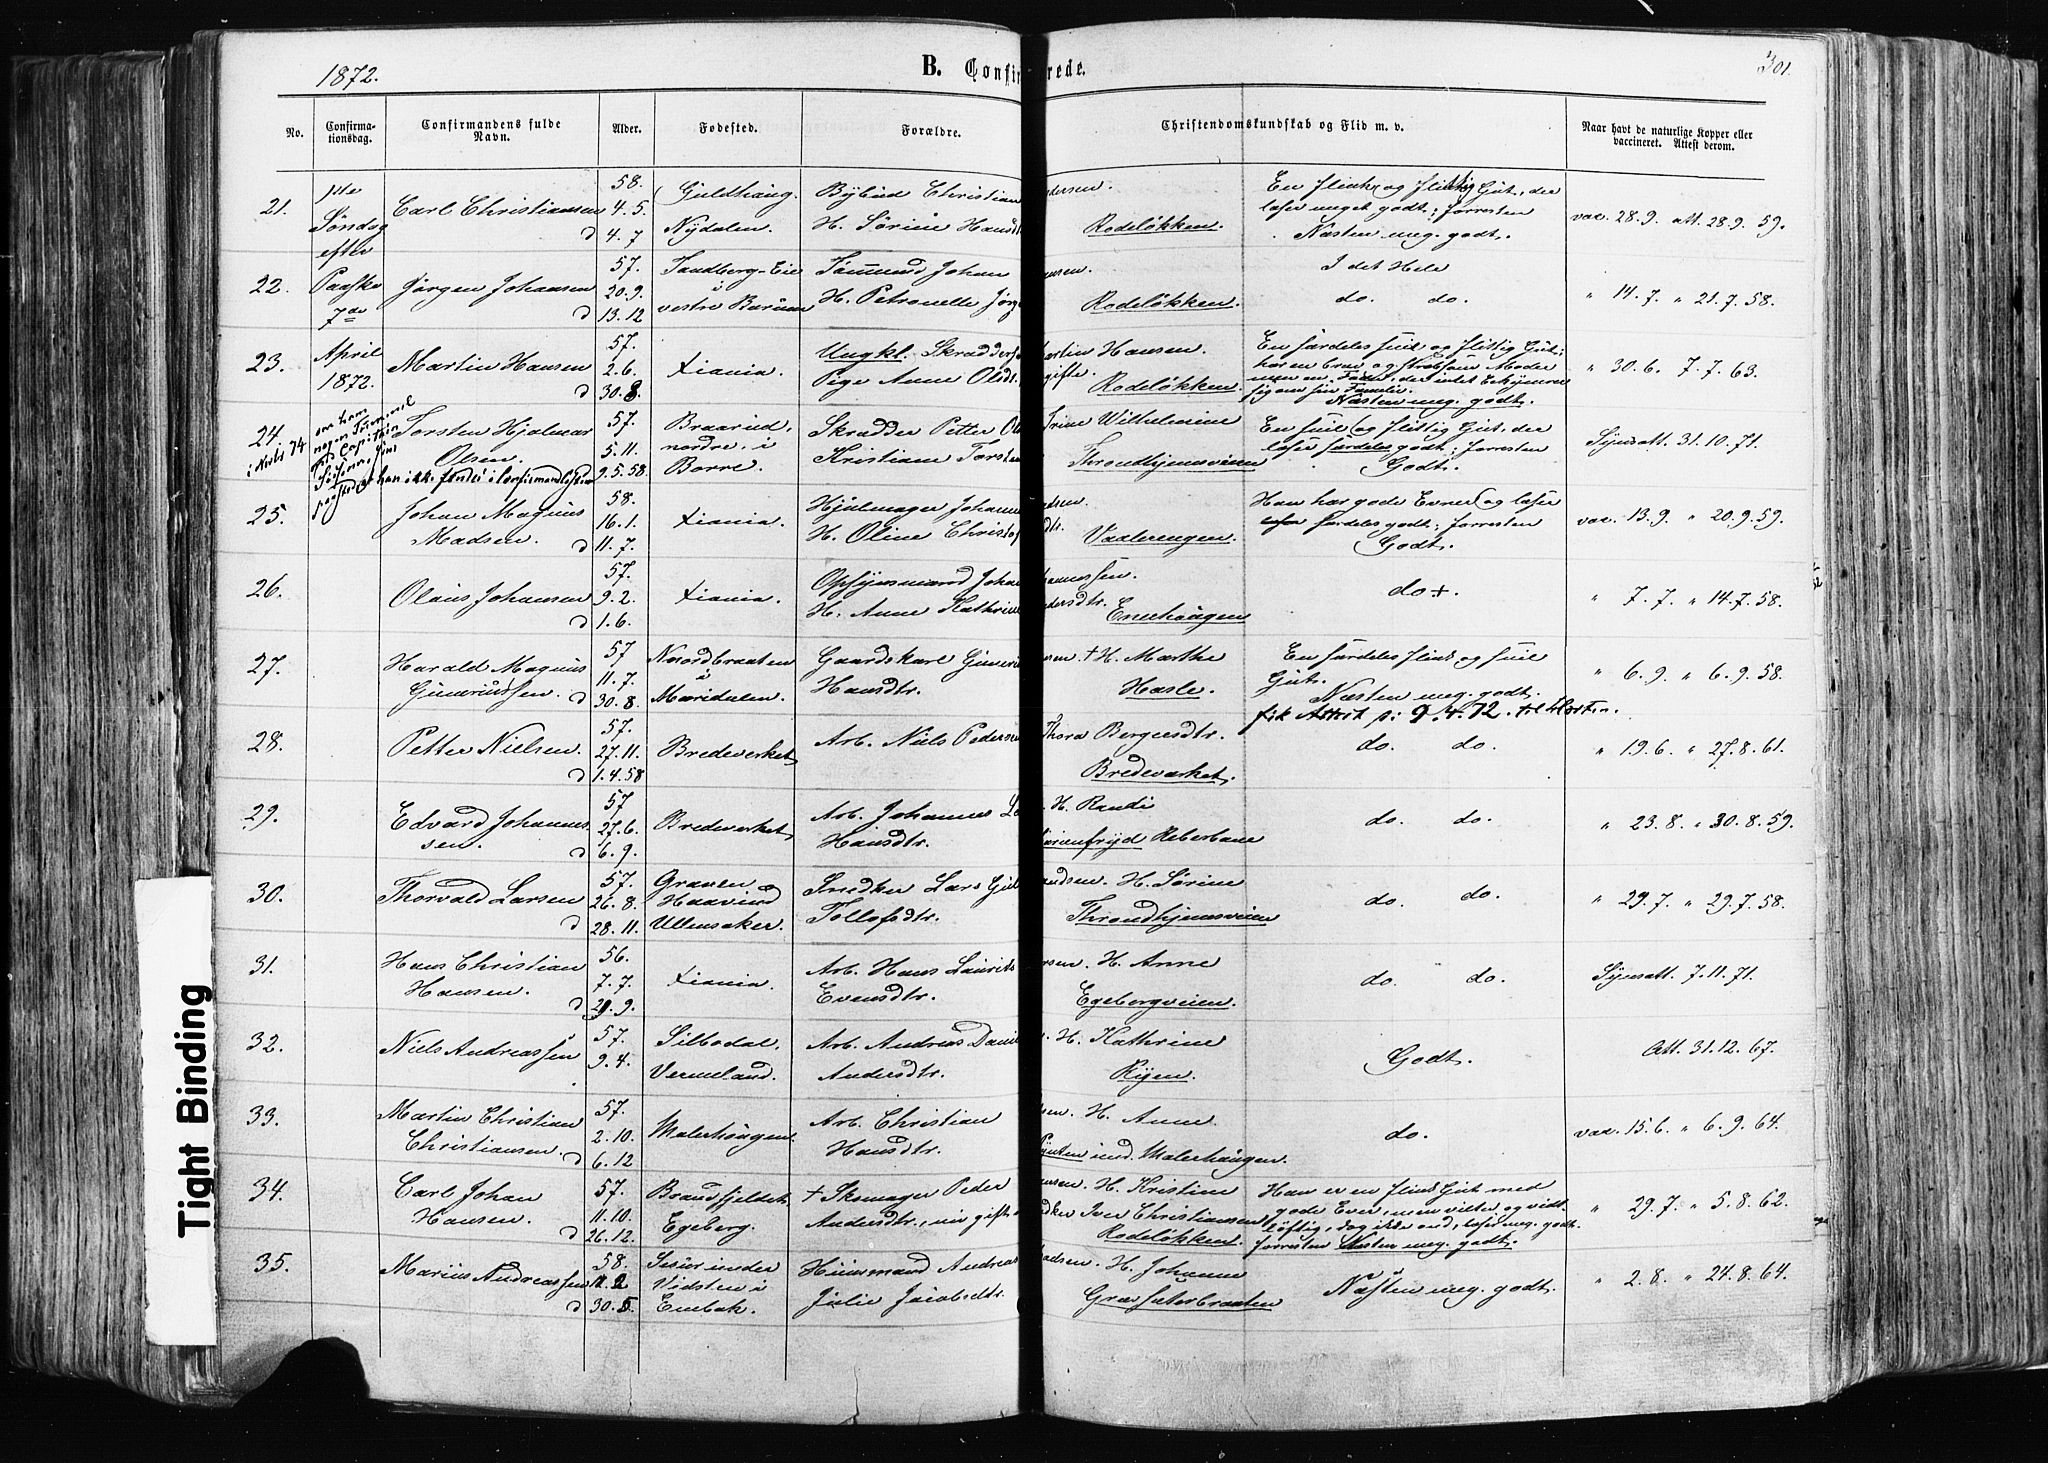 1872.
B. Confir
rede.
301.
No.
Confirma-
tionsdag.
Confirmandens fulde
Navn.
Alder.
Fødested.
Forældre.
Christendomskundskab og Flid m. v.
Naar havt de naturlige Kopper eller
vaccineret. Attest derom.
21.
1ste
Søndag
efter
Paaske
7de
April
1872.
Carl Christiansen
d
58.
4.5.
4.7
Guldhaug.
Nydalen.
Bybud Christian
H. Sørine Hansdt
ndersen.
Rodeløkken.
En flink og flittig Gut, der
læser meget godt; forresten
Næsten meg. godt.
vac. 28.9. att. 28.9.59.
22.
Jørgen Johansen
d
57.
20.9.
13.12
Sandberg-Eie
i
vestre Bærum
Tømmrmd Johan
H. Petronelle Jørg
ansen.
Rodeløkken.
I det Hele
do. do.
" 14.7. " 21.7.58.
23.
Martin Hansen
d
57.
2.6.
30.8.
Xiania.
Ungkl. Skrædders
Pige Anne Olsdt.
artin Hansen.
gifte.
Rodeløkken.
En særdeles snil og flittig Gut;
har en brav og stræbsom Moder
men en Fader, der intet bekymrer
sig om sin Familie.
Næsten meg. godt.
" 30.6. 7.7.63.
24.
Torsten Hjalmar
Olsen.
57.
5.11.
9.5.58.
Braarud
nordre. i
Borre.
Skrædder Petter Ol
Kristiane Torsten
Trine Wilhelmine
Throndhjemsveien
En snil og flittig Gut, der
læser særdeles godt; forresten
Godt.
Synsatt. 31.10.71.
han ikke findes i
25.
Johan Magnus
Madsen.
d
58.
16.1.
11.7.
Xiania.
Hjulmager Johann
H. Oline Christof
adsen.
dtr.
Vaalerengen.
Han har gode Evner og læser
særdeles godt; forresten
Godt.
vac. 13.9. " 20.9.59.
26.
Olaus Johansen
d
57.
9.2.
1.6.
Xiania.
Opsynsmand Joha
H. Anne Kathrine
hannessen.
edersdtr.
Enerhaugen
do +.
" 7.7. " 14.7.58.
27.
Harald Magnus
Gunerius sen.
d
57
11.7.
30.8.
Nordbraaten
i
Maridalen.
Gaardskarl Guneri
Hansdtr.
ersen. + H. Marthe
Hasle.
En særdeles flink og snil
Gut.
Næsten meg. godt.
fik Attest pr 9.4.72. til Horten.
" 6.9. " 6.9.58.
28.
Petter Nielsen.
d
57.
27.11.
1.4.58
Bredeverket
Arb. Niels Peders
Thora Bergersdtr.
Bredeverket.
do. do.
" 19.6. " 27.8.61.
29.
Edvard Johannes
sen.
d
57
27.6.
6.9.
Bredeverket
Arb. Johannes La
Hansdtr.
. H. Randi
arienfryd Reberbane
do. do.
" 23.8. " 30.8.59.
30.
Thorvald Larsen
d
57.
26.8.
28.11.
Graven
Haavind
Ullensaker.
Snedker Lars Gul
Tollefsdtr.
andsen. H. Sørine
Throndhjemsveien
do. do.
" 29.7. " 29.7.58.
31.
Hans Christian
Hansen.
d
56.
7.7.
29.9.
Xiania.
Arb. Hans Laurits
Evensdtr.
ersen. H. Anne
Egebergveien.
do. do.
Synsatt. 7.11.71.
32.
Niels Andreassen
57.
9.4.
Silbodal.
Vermeland.
Arb. Andreas Dani
Andersdtr.
. H. Kathrine
Ryen.
Godt.
Att. 31.12.67.
33.
Martin Christian
Christiansen.
d
57.
2.10.
6.12
Malerhaugen.
Arb. Christian
Hansdtr.
sen. H. Anne
Pynten ind. Malerhaugen.
do.
vac. 15.6. " 6.9.64.
34.
Carl Johan
Hansen.
d
57.
11.10.
26.12.
Brandfjeldet
Egeberg.
+ Skomager Peder
Andersdtr., nu gift m
ansen. H. Kristine
edker Iver Christiansen
Rodeløkken.
Han er en flink Gut med
gode Evner, men vilter og vidt
løftig, dog ikke ond; læser meg. godt
forresten Næsten meg. godt.
" 29.7. " 5.8.62.
35.
Marius Andreassen
d
58.
11.2
30.5
under
Vidsten i
Enebak.
Huusmand Andreas
Julie Jacobsdtr.
adsen. H. Johanne
Græsæterbraaten
Næsten meg. godt.
" 2.8. " 24.8.64.
Tight Binding